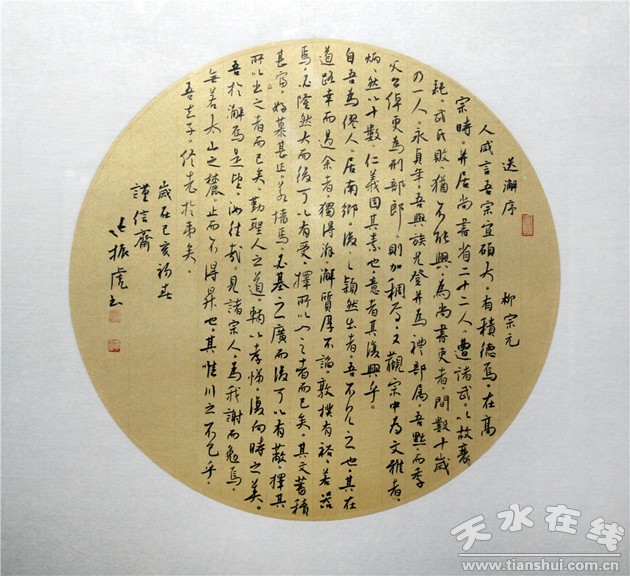 送澥序 柳宗元
人咸言吾宗宜碩大,有積德焉。在高
宗時,并居尚書省二十二人。遭諸武,以故衰
耗。武氏敗,猶不能興。為尚書吏者,間數十歲
乃一人。永貞年,吾與族兄登并為禮部屬。吾黜,而季
父公綽更為刑部郎,則加稠焉。又觀宗中為文雅者,
炳炳然以十數,仁義固其素也,意者其復興乎。
自吾為僇人,居南鄉,後之穎然出者,吾不見之也。其在
道路幸而過余者,獨得澥。澥質厚不諂,敦樸有裕,若器
焉,必隆然大而後可以有受,擇所以入之者而已矣。其文蓄積
甚富,好慕甚正,若墻焉,必基之廣而後可以有蔽,擇其
所以出之者而已矣。勤聖人之道,輔以孝悌,復向時之美,
吾於澥焉是望。汝往哉,見諸宗人,為我謝而勉焉,
無若太山之麓,止而不得昇也,其惟川之不已乎。
吾去子,終老於夷矣。
歲在己亥初春
謹信齋
振虎書
天水在线
www.tianshui.com.cn